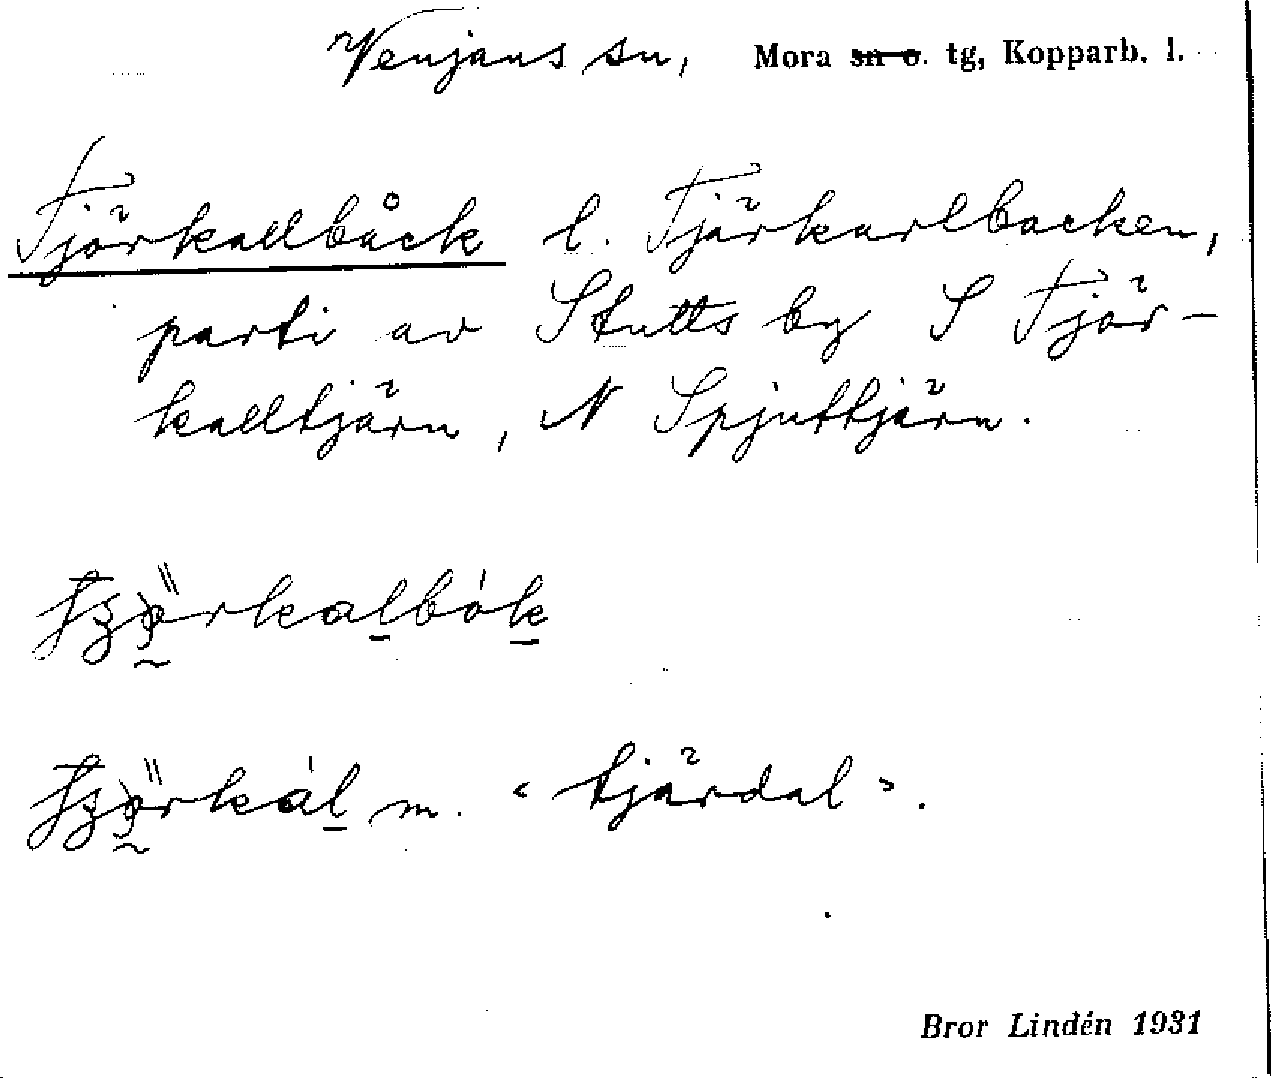 Venjans sn, Mora sn o. tg, Kopparb. l.
Tjörkallbåck l. Tjärkarlbacken,
parti av Stutts by S Tjör-
kalltjärn, N Spjuttjärn.
m. "tjärdal".
Bror Lindén 1931